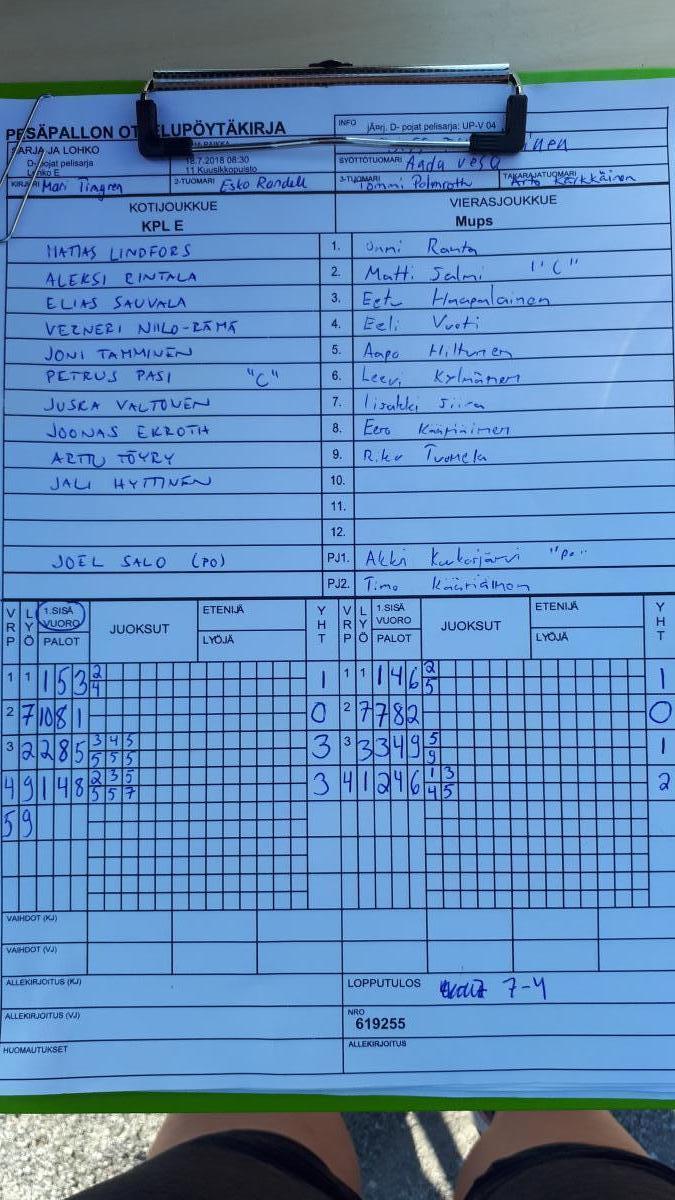 PESÄPALLON OT ELUPÖYTÄKIRJA
INFO jÄrj. D- pojat pelisarja: UP-V 04
SARJA JA LOHKO
D- pojat pelisarja
Lohko E
18.7.2018 08:30
11 Kuusikkopuisto
inen
SYÖTTÖTUOMARI Aada Vesa
KIRJURI Mari Tingren 2-TUOMARI Esko Randell 3-TUOMARI Tommi Palmroth TAKARAJATUOMARI Arto Kärkkäinen
KOTIJOUKKUE VIERASJOUKKUE
KPL E Mups
MATIAS LINDFORS 1. Onni Ranta
ALEKSI RINTALA 2. Matti Salmi "C"
ELIAS SAUVALA 3. Eetu Haapalainen
VERNERI NIILO-RÄMÄ 4. Eeli Vuoti
JONI TAMMINEN 5. Aapo Hiltunen
PETRUS PASI "C" 6. Leevi Kylmänen
JUSKA VALTONEN 7. Iisakki Siira
JOONAS EKROTH 8. Eero Kääriäinen
ARTTU TÖYRY 9. Riku Tuomela
JALI HYTTINEN 10.
11.
12.
JOEL SALO (PO) PJ1. Akki Kukorjärvi "Po"
PJ2. Timo Kääriäinen
VRP LYÖ 1.SISÄ VUORO PALOT JUOKSUT ETENIJÄ LYÖJÄ YHT VRP LYÖ 1.SISÄ VUORO PALOT JUOKSUT ETENIJÄ LYÖJÄ YHT
1 1 1 5 3 2/4 1 1 1 1 4 6 2/5 1
2 7 10 8 1 0 2 7 7 8 2 0
3 2 2 8 5 3/5 4/5 5/5 3 3 3 3 4 9 5/9 1
4 9 1 4 8 2/5 3/5 5/7 3 4 1 2 4 6 1/4 3/5 2
5 9
VAIHDOT (KJ)
VAIHDOT (VJ)
ALLEKIRJOITUS (KJ) LOPPUTULOS 7-4
ALLEKIRJOITUS (VJ) NRO
619255
HUOMAUTUKSET ALLEKIRJOITUS